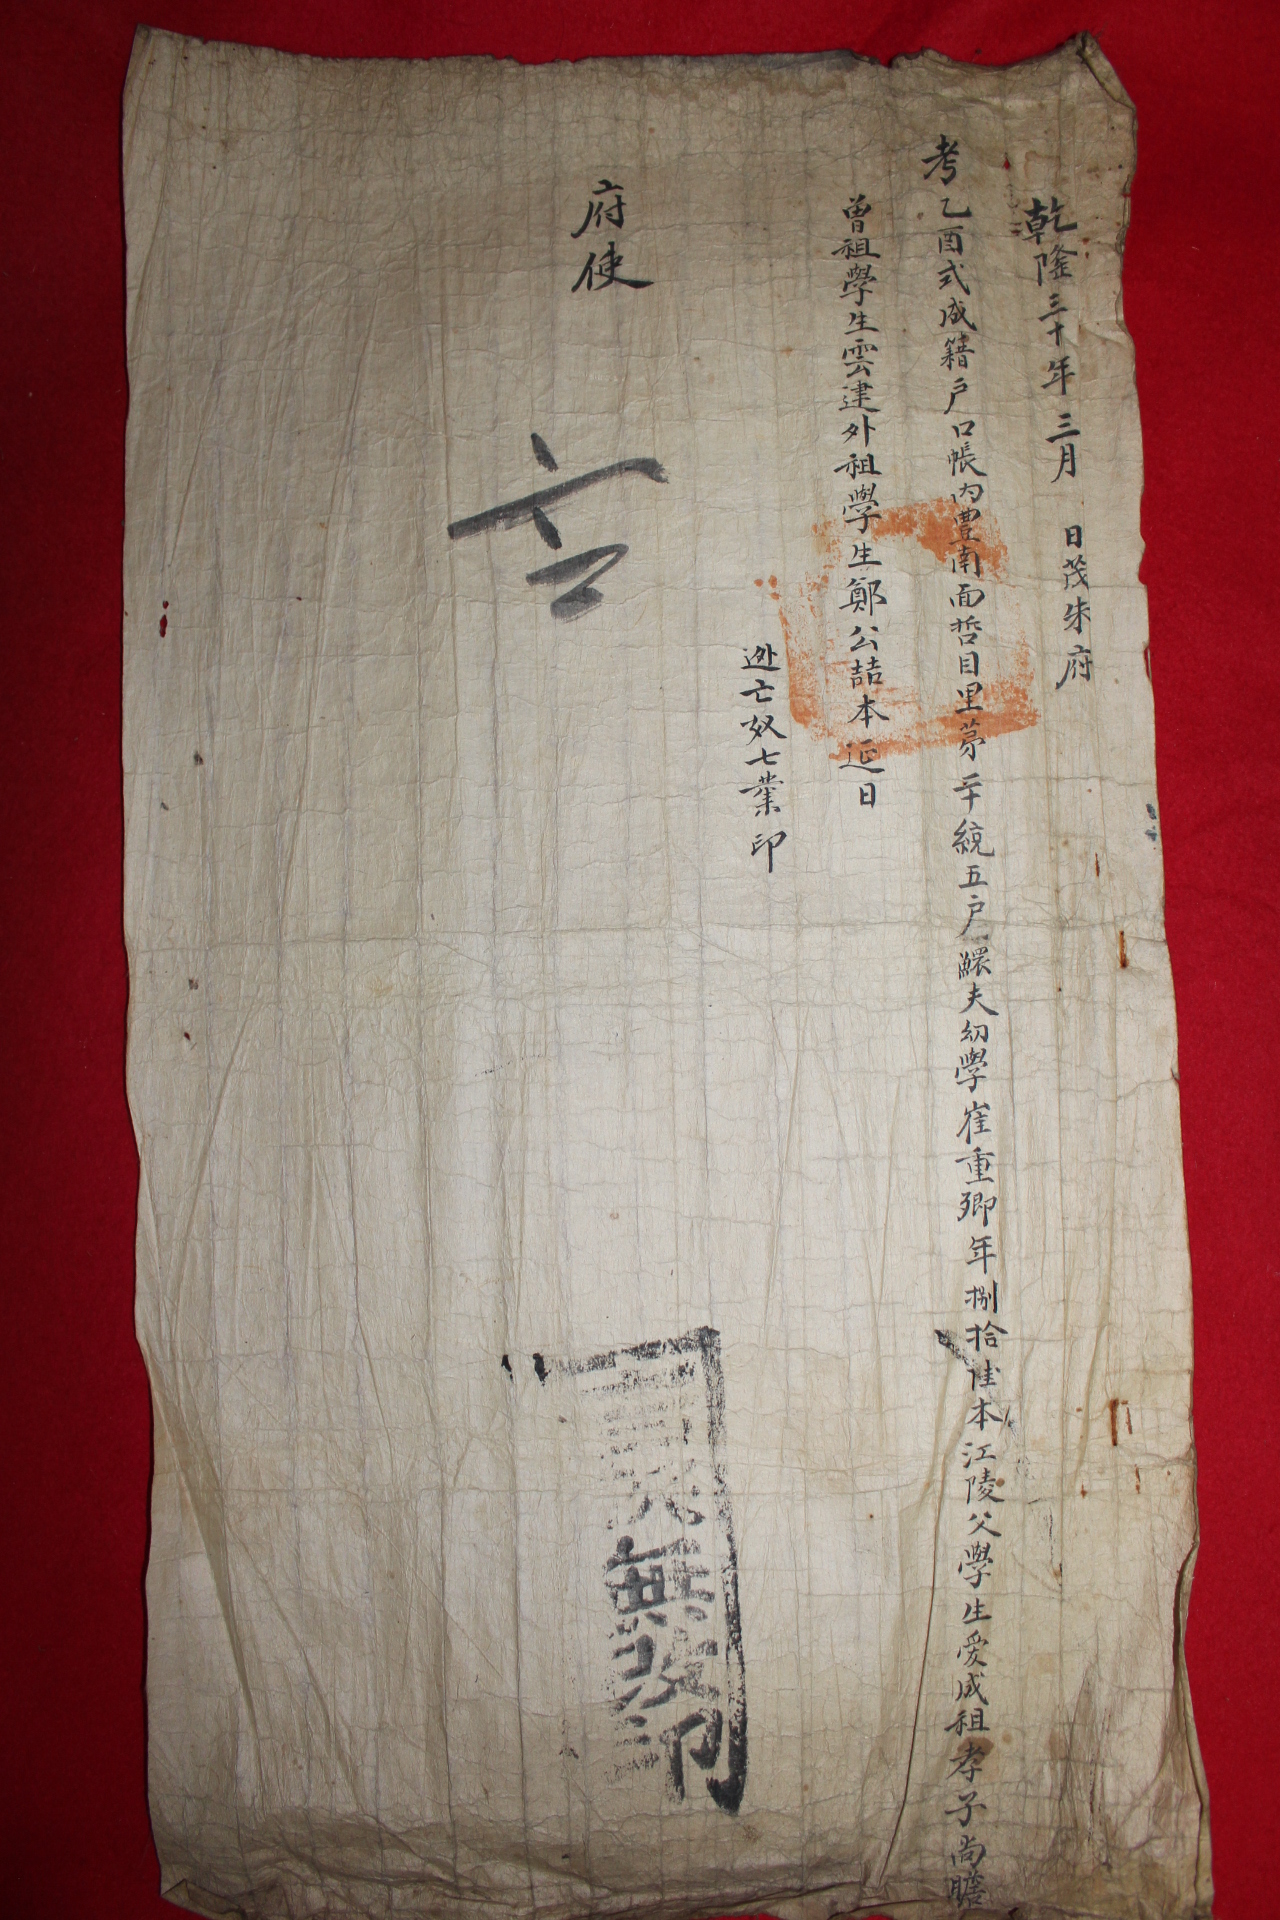 乾隆三十年三月 日茂朱府
考乙酉式成籍戶口帳內豊南面哲目里第二十統五戶鰥夫幼學崔重卿年捌拾陸本江陵父學生愛成祖孝子尚瞻
曾祖學生雲建外祖學生鄭公喆本延日
逃亡奴七業印
府使
無改印